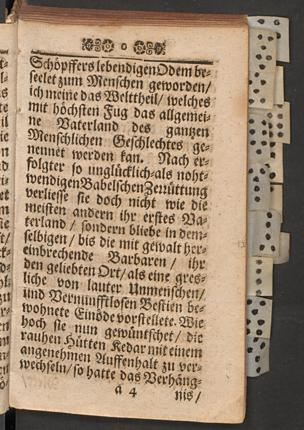 Schöpffers lebendigen Odem be-
seelet zum Menschen geworden/
ich meine das Welttheil/ welches
mit höchsten Fug das allgemei-
ne Vaterland des gantzen
Menschlichen Geschlechtes ge-
nennet werden kan. Nach er-
folgter so unglücklich-als noht-
wendigen Babelschen Zerrüttung
verliesse sie doch nicht wie die
meisten andern ihr erstes Va-
terland/ sondern bliebe in dem-
selbigen/ bis die mit gewalt her-
einbrechende Barbaren/ ihr
den geliebten Ort/ als eine gres-
liche von lauter Unmenschen/
und Vernunfftlosen Bestien be-
wohnete Einöde vorstellete. Wie
hoch sie nun gewüntschet/ die
rauhen Hütten Kedar mit einem
angenehmen Auffenhalt zu ver-
wechseln/ so hatte das Verhäng-
a 4 nis/